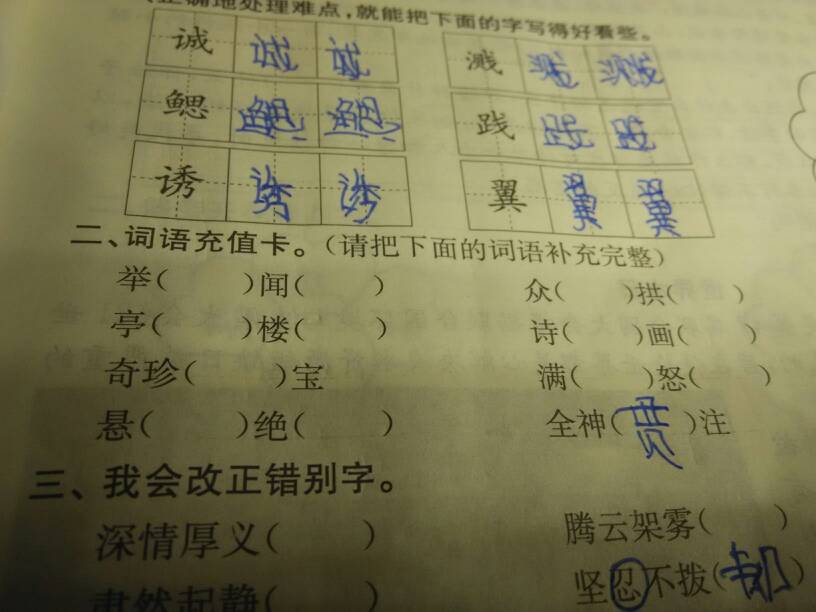 正确地处理难点,就能把下面的字写得好看些。
诚 诚 诚 溅 溅 溅
鳃 鳃 鳃 践 践 践
诱 诱 诱 翼 翼 翼
二、词语充值卡。(请把下面的词语补充完整)
举( )闻( ) 众( )拱( )
亭( )楼( ) 诗( )画( )
奇珍( )宝 满( )怒( )
悬( )绝( ) 全神(贯)注
三、我会改正错别字。
深情厚义( ) 腾云架雾( )
肃然起静( 坚忍不拨( )